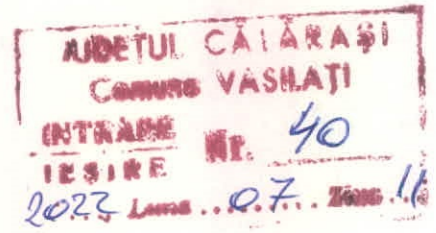 JUDEȚUL CĂLĂRAȘI
Comuna VASILAȚI
INTRARE
IEȘIRE Nr. 40
2022 Luna 07 Ziua 11